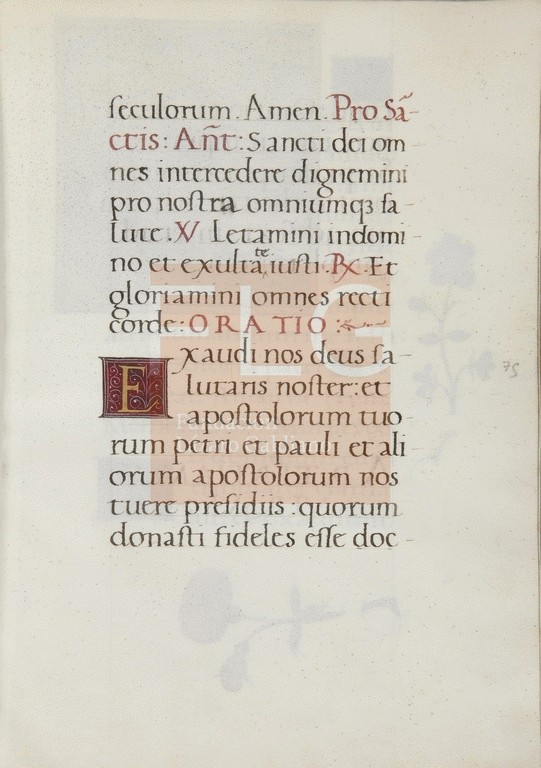 seculorum. Amen. Pro Sā-
ctis: Añt: Sancti dei om-
nes intercedere dignemini
pro nostra omniumqꝫ sa-
lute. ℣ Letamini in domi-
no et exultate iusti. ℟. Et
gloriamini omnes recti
corde: ORATIO :~
Exaudi nos deus sa-
lutaris noster: et
apostolorum tuo-
rum petri et pauli et ali-
orum apostolorum nos
tuere presidiis: quorum
donasti fideles esse doc-
75
FLG
Fundación